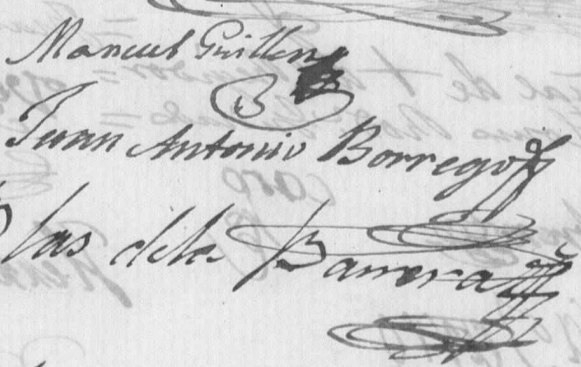 Manuel Guillen
Juan Antonio Borrego
Blas dela Barrera